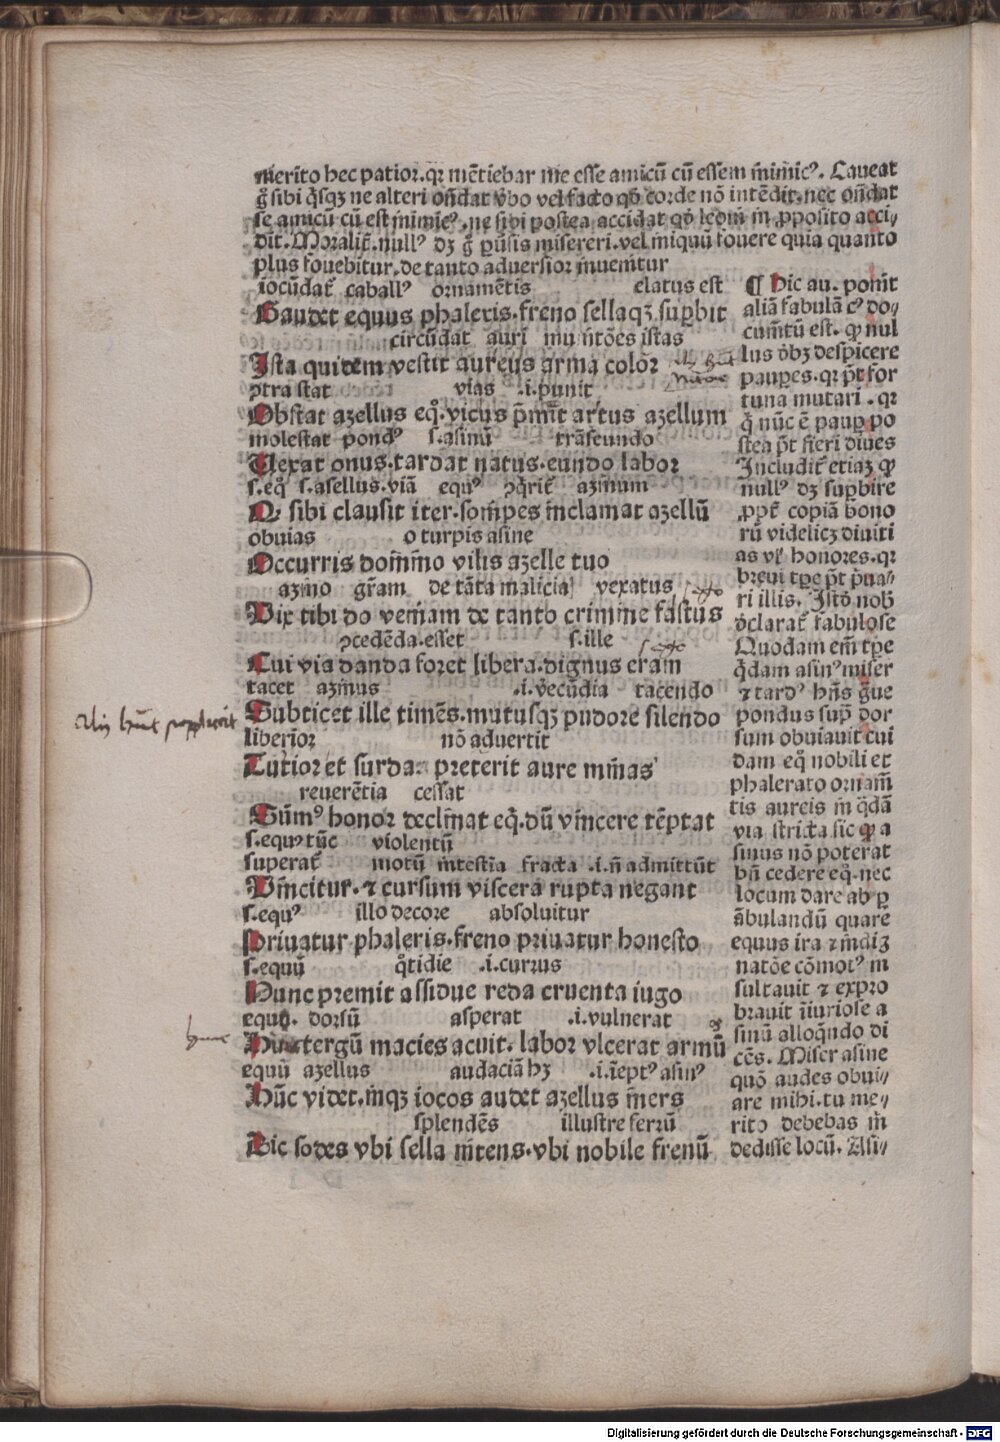 merito hec patior. qꝛ mētiebar me esse amicū cū essem inimicꝰ. Caueat
g̊ sibi q̄sqꝫ ne alteri oñdat v̓bo vel facto qd̓ corde nō intēdit. nec oñdat
se amicū cū est inimicꝰ. ne sibi postea accidat qd̓ leoni in ꝓposito acci⸗
dit. Moralit̓. nullꝰ dꝫ g̊ ꝑuersis misereri. vel iniquū fouere quia quanto
plus fouebitur. de tanto aduersior inuenitur
iocūdat᷑ caballꝰ ornamētis elatus est
Gaudet equus phaleris. freno sellaqꝫ suꝑbit
circūdat auri munitōes istas
Ista quidem vestit aureus arma color
ꝯtra stat vias .i. punit
Obstat azellus eqͦ. vicus p̄mit artus azellum
molestat pondꝰ s. asinū trāseundo
Uexat onus. tardat natus. eundo labor
s. eqͦ s. asellus. viā equꝰ ꝯq̄rit᷑ azinum
Q sibi clausit iter. sonipes inclamat azellū
obuias o turpis asine
Occurris domino vilis azelle tuo
azino gr̄am de tāta malicia vexatus
Uix tibi do veniam de tanto crimine fastus
ꝯcedēda. esset s. ille
Cui via danda foret libera. dignus eram
tacet azinus .i. verecūdia tacendo
Subticet ille timēs. mutusqꝫ pudore silendo
liberior nō aduertit
Tutior et surda preterit aure minas
reuerētia cessat
Sūmꝰ honor declinat eqͦ. dū vincere tēptat
s. equꝰ tūc violentū
superat᷑ motū intestia fracta .i. nō admittūt
Vincitur. ⁊ cursum viscera rupta negant
s. equꝰ illo decore absoluitur
Priuatur phaleris. freno priuatur honesto
s. equū qͦtidie .i. currus
Hunc premit assidue reda cruenta iugo
equo. dorsū asperat .i. vulnerat
Huic tergū macies acuit. labor vlcerat armū
equū azellus audaciā hꝫ .i. ieptꝰ asinꝰ
Hūc videt. inqꝫ iocos audet azellus iners
splendēs illustre ferrū
Dic sodes vbi sella nitens. vbi nobile frenū
¶ Hic au. ponit
aliā fabulā cꝰ do⸗
cumētū est. qp̄ nul
lus dꝫ despicere
pauꝑes. qꝛ pōt for
tuna mutari. qꝛ
q̄ nūc ē pauꝑ po
stea pōt fieri diues
Includit᷑ etiā qp̄
nullꝰ dꝫ suꝑbire
ꝓpt̓ copiā bono
rū videlicꝫ diuiti
as vl̓ honores. qꝛ
breui tp̄e pōt priua⸗
ri illis. Istō nob̓
declarat᷑ fabulose
Quodam em̄ tp̄e
q̄dam asinꝰ miser
⁊ tardꝰ hn̄s graue
pondus suꝑ dor
sum obuiauit cui
dam eqͦ nobili et
phalerato ornam̄
tis aureis in q̄dā
via stricta sic qp̄ a
sinus nō poterat
bn̄ cedere eqͦ. nec
locum dare ab ꝑ
ābulandū quare
equus ira ⁊ indig
natōe cōmotꝰ in
sultauit ⁊ expro
brauit iniuriose a
sinū alloq̄ndo di
cēs. Miser asine
quō audes obui⸗
are mihi. tu me⸗
rito debebas m̓
dedisse locū. Asi⸗
Digitalisierung gefördert durch die Deutsche Forschungsgemeinschaft - DFG